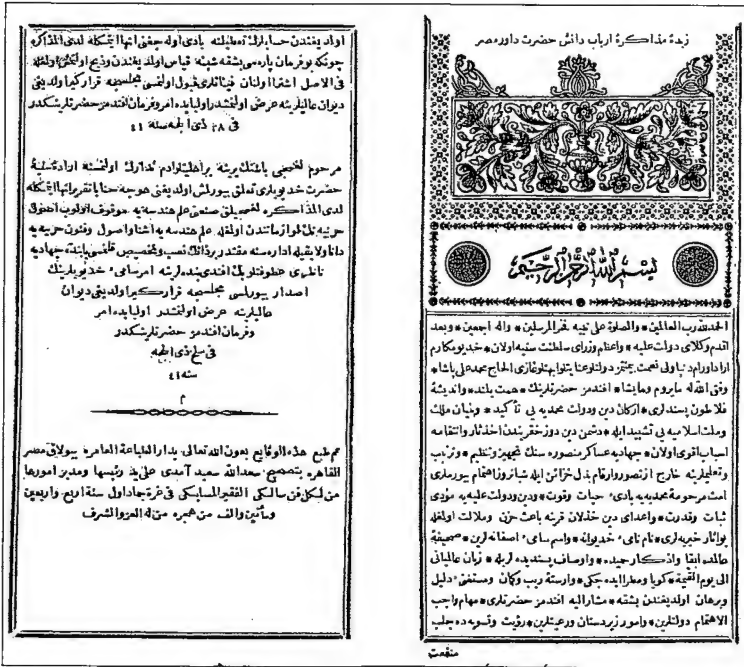 زبدة مذاكرة ارباب دانش حضرت داور مصر
بسم الله الرحمن الرحيم
الحمدلله رب العالمين * والصلوة على نبيه فخر المرسلين * واله اجمعين * وبعد
اقدم وكلاى دولت عليه * واعظم وزراى سلطنت سنيه اولان * خديو مكارم
دولتلو عنايتلو ابهتلو غازى الحاج محمد على پاشا *
وفق الله له مايروم ومايشا * افندمز حضرتلرينك * همت بلند * وانديشۀ
فلاطون پسندلرى * اركان دين ودولت محمديه يى تأكيد * وبنيان ملك
وملت اسلاميه يى تشييد ايله * دشمن دين دوزخ قريندن اخذ ثار وانتقامه
اسباب اقوى اولان * جهاديه عساكر منصوره سنك تجهيز وتنظيم * وترتيب
وتعليملرينه خارج از تصور وارقام بذل خزائن ايله شبانروز اهتمام بيورملرى
امت مرحومۀ محمديه يه بادئ حيات وقوت * ودين ودولت عليه يه مؤدئ
ثبات وقدرت * واعداى دين خذلان قرينه باعث حزن وملالت اولمغله
بو اثار خيريه لرى * نام نامئ خديوانه * واسم سامئ اصفانه لرين * صحيفۀ
عالمده ابقا واذكار حميده * واوصاف پسنديده لريله * زبان عالميانى
الى يوم القيمه * كويا ومعطر ايده جكى * وارستۀ ريب وكمان ومستغنئ دليل
وبرهان اولديغندن بشقه * مشار اليه افندمز حضرتلرى * مهام واجب
الاهتمام دولتلرين * وامور زيردستان ورعيتلرين * رؤيت وتسويه ده جلب
منفعت
اولديغندن حسابلرك تعطيلنه بادى اوله جغنى انها ايتمكله لدى المذاكره
چونكه بو فرمان پاره سى بشقه شيئه قياس اولنديغندن
فى الاصل اولنان قبول اولنمسى مجلسجه قراركير اولديغى
ديوان عاليلرينه عرض اولنمشدر اوليابده امر وفرمان افندمز حضرتلرينكدر
فى ٢٨ ذى الحجه سنة ٤١
مرحوم يرينه بر اهليتلو ادم تدارك اولنمسنه ارادۀ سنيۀ
حضرت خديويلرى تعلق بيورلمش اولديغنى خوجه با تقرير انها ايتمكله
لدى المذاكره تحصيللق صنعتى علم هندسه يه موقوف اولوب اصول
حربيه نك لوازماتندن اولمغله علم هندسه يه اشنا واصول وفنون حربيه يه
دانا ولايقيله اداره سنه مقتدر بر ذاتك نصب وتخصيص قلنمسى بابنده جهاديه
ناظرى عطوفتلو بك افندى بنده لرينه امر سامئ خديويلرينك
اصدار بيورلمسى مجلسجه قراركير اولديغى ديوان
عاليلرينه عرض اولنمشدر اوليابده امر
وفرمان افندمز حضرتلرينكدر
فى سلخ ذى الحجه
سنه ٤١
م
تم طبع هذه الوقايع بعون الله تعالى بدار الطباعة العامره ببولاق مصر
القاهره بتصحيح سعد الله سعيد آمدى على يد رئيسها ومدير امورها
من سالكى الفقير فى غرة جماد اول سنة اربع واربعين
ومأتين والف من هجره من له العز والشرف